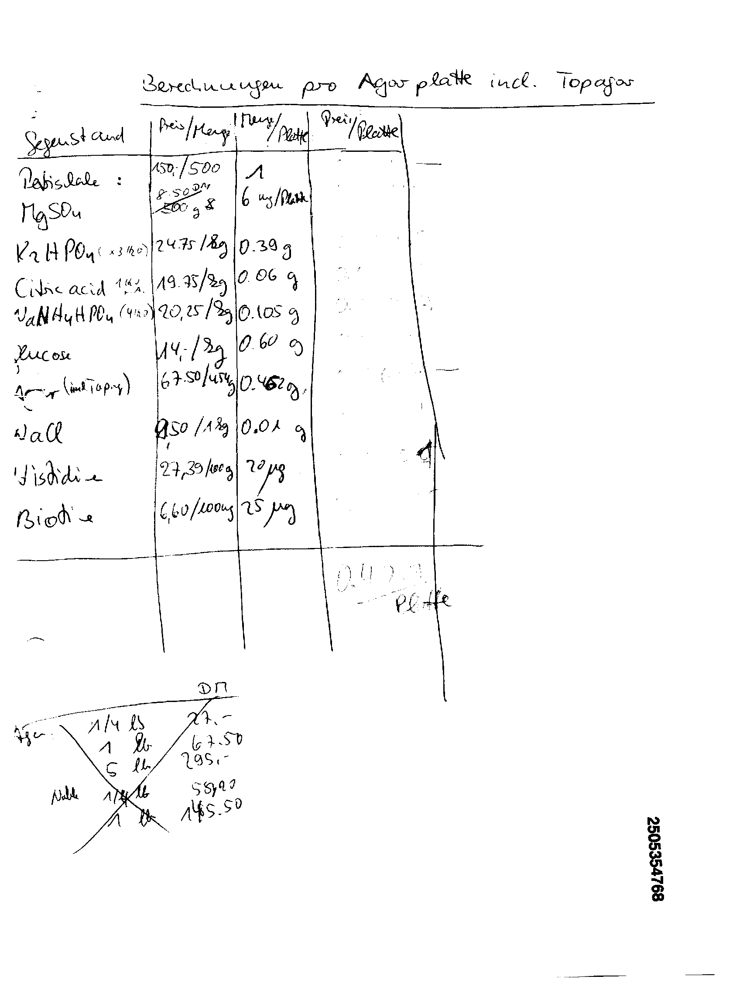 Berechnungen pro Agarplatte incl. Topagar
Gegenstand Preis/Menge Menge/Platte Preis/Platte
Petrischale : 150,-/500 1
MgSO4 8.50 DM 200 g 6 mg/Platte
K2HPO4 (x3H2O) 24.75/kg 0.39 g
Citric acid 19.75/kg 0.06 g
NaNH4HPO4 (4H2O) 20,25/kg 0.105 g
Glucose 14,-/kg 0.60 g
(incl Topag) 67.50/454g 0.462 g
NaCl 9,50/1kg 0.01 g
Histidine 27,39/100g 20 µg
Biotine 6,60/100mg 25 µg
Platte
DM
Agar 1/4 lb 27.-
1 lb 67.50
5 lb 295,-
Noble 1/4 lb 58,20
1 lb 145.50
2505354768